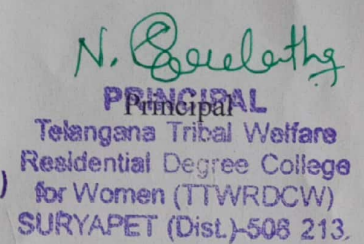 N.
PRINCIPAL
Principal
Telangana Tribal Welfare
Residential Degree College
) for Women (TTWRDCW)
SURYAPET (Dist.)-508 213.